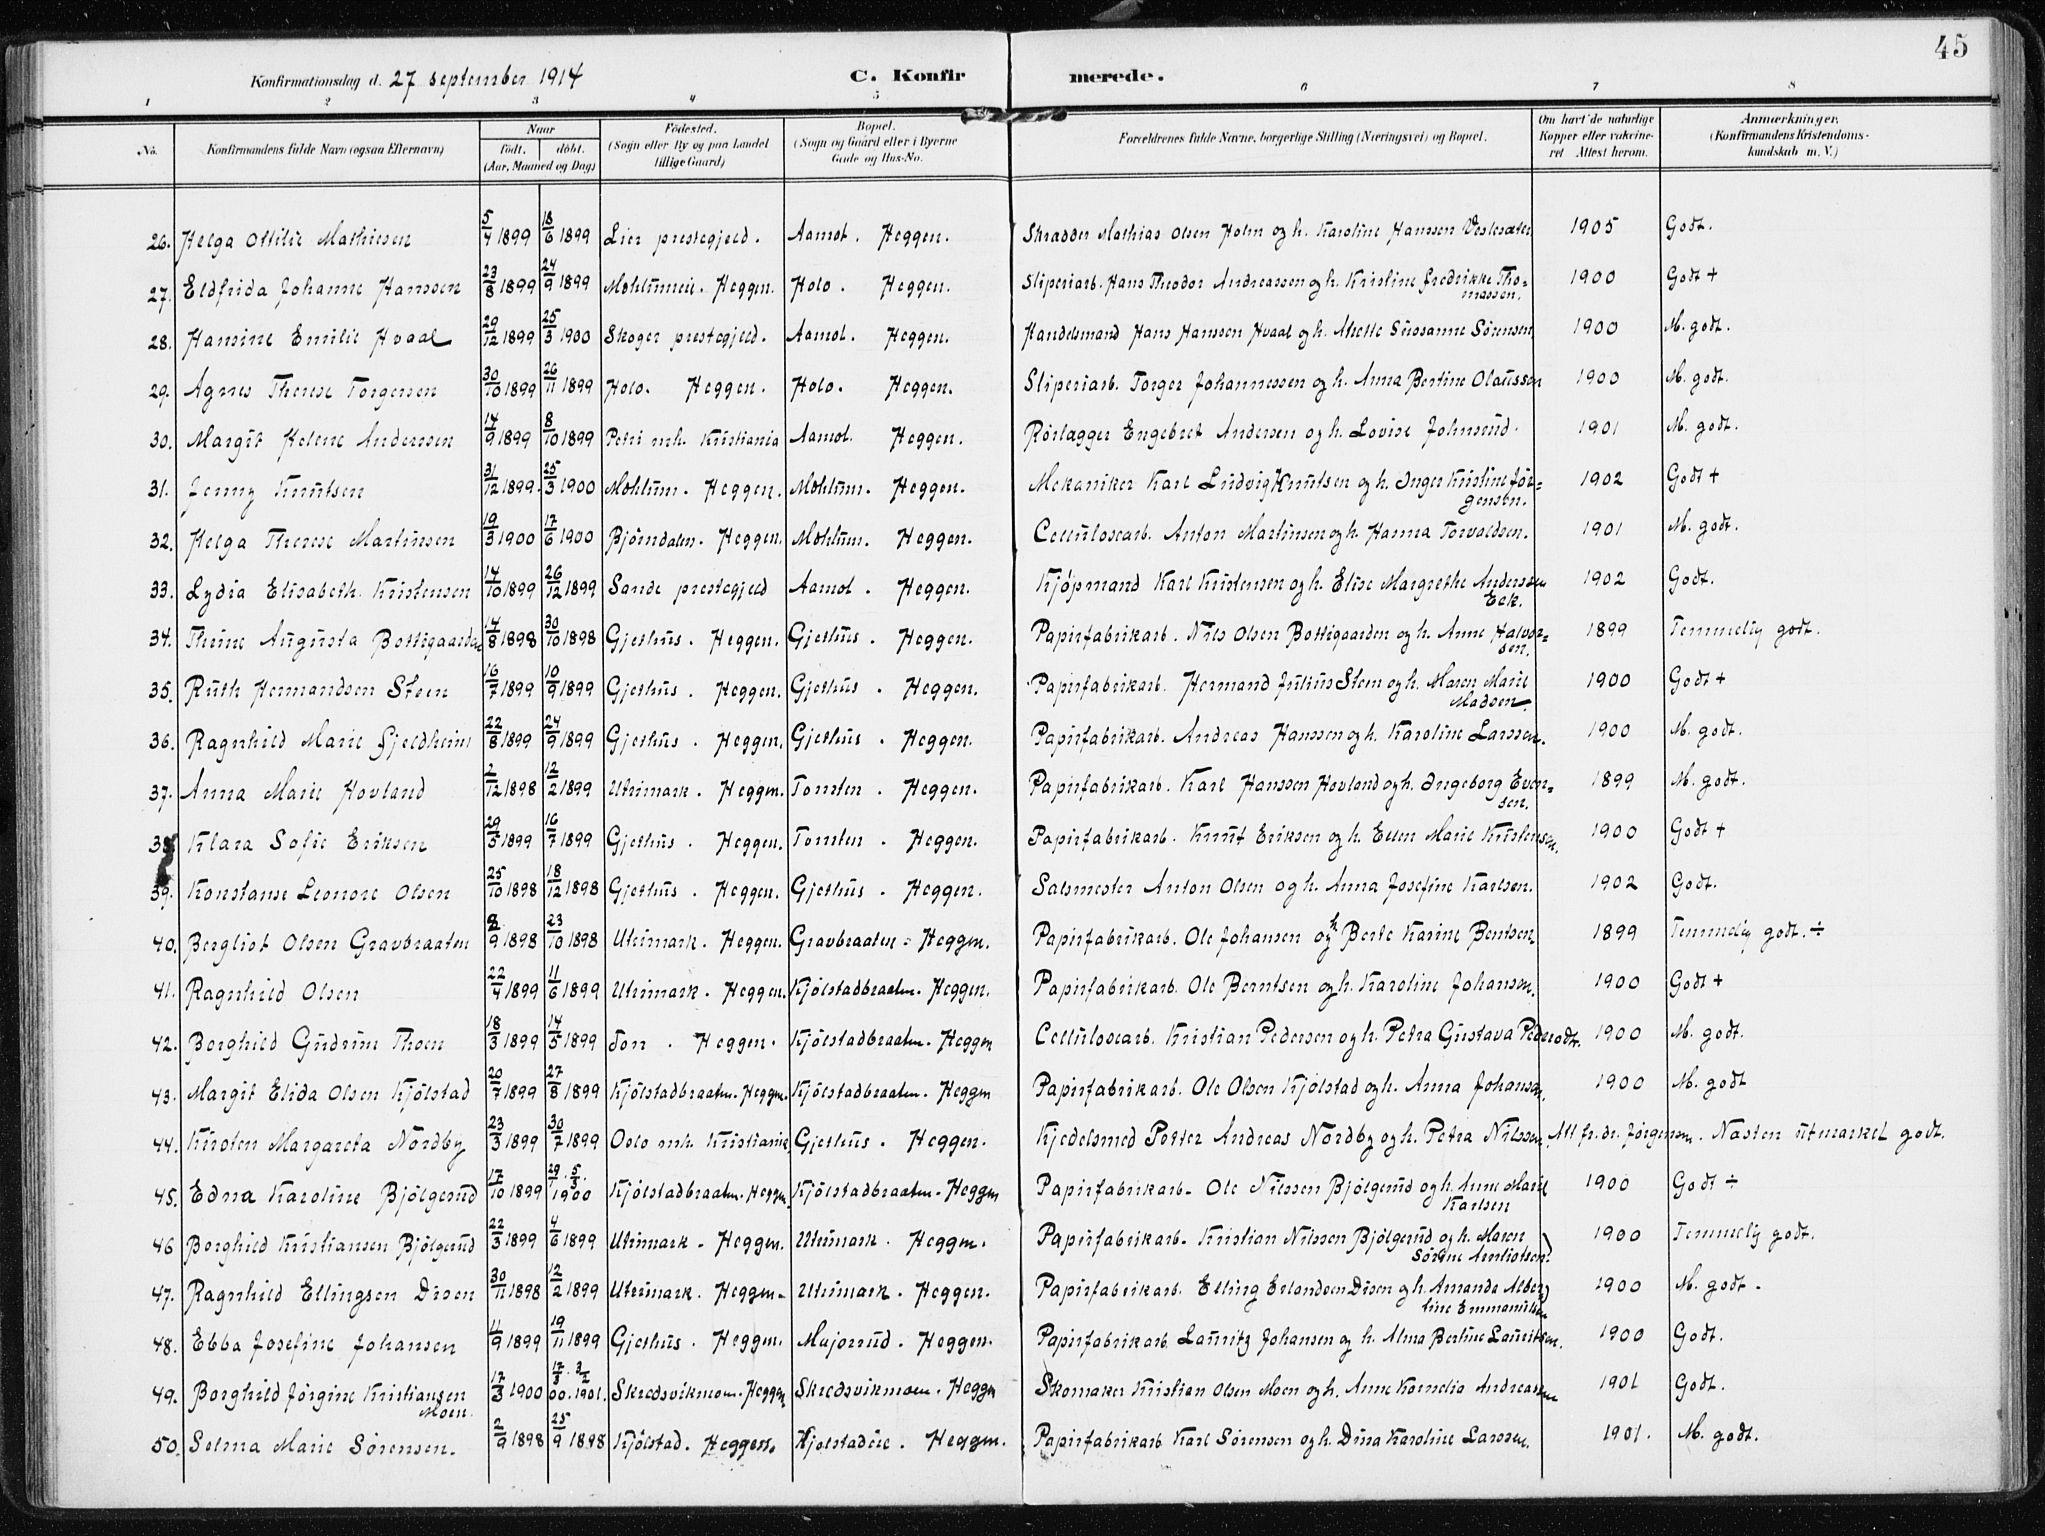 45
Konfirmationsdag d. 27 september 1914 C. Konfirmerede.
1 2 3 4 5 6 7 8
No. Konfirmandens fulde Navn (ogsaa Efternavn) Naar født. døbt. (Aar, Maaned og Dag) Fødested. (Sogn eller By og paa Landet tillige Gaard) Bopæl. (Sogn og Gaard eller i Byerne Gade og Hus-No. Forældrenes fulde Navne, borgerlige Stilling (Næringsvei) og Bopæl. Om havt de naturlige Kopper eller vakcineret Attest herom. Anmærkninger. (Konfirmandens Kristendomskundskab m. V.)
26. Helga Ottilie Mathiesen 5/4 1899 18/6 1899 Lier prestegjeld. Aamot. Heggen. Skrædder Mathias Olsen Holm og h. Karoline Hanssen Vestesæter 1905 Godt.
27. Eldfrida Johanne Hanssen 23/8 1899 24/9 1899 Møhlumeie. Heggen. Holo. Heggen. Sliperiarb. Hans Theodor Andreassen og h. Kristine Fredrikke Thomassen. 1900 Godt +
28. Hansine Emilie Hvaal 29/12 1899 25/3 1900 Skoger prestegjeld. Aamot. Heggen. Handelsmand Hans Hanssen Hvaal og h. Mette Sussanne Sørensen 1900 M. godt.
29. Agnes Therese Torgersen 30/10 1899 26/11 1899 Holo. Heggen. Holo. Heggen. Sliperiarb. Torger Johannessen og h. Anna Bertine Olaussen 1900 M. godt.
30. Margit Helene Anderssen 14/9 1899 8/10 1899 Petri mh. Kristiania Aamot. Heggen. Rørlægger Engebret Andersen og h. Lovise Johnsrud. 1901 M. godt.
31. Jenny Knutsen 31/12 1899. 25/3 1900 Møhlum. Heggen. Møhlum. Heggen. Mekaniker Karl Ludvig Knutsen og h. Inger Kristine Jørgensen. 1902 Godt +
32. Helga Therese Martinsen 19/3 1900 17/6 1900 Bjørndalen. Heggen. Møhlum. Heggen. Cellulosearb. Anton Martinsen og h. Hanna Torvaldsen. 1901 M. godt.
33. Lydia Elisabeth Kristensen 14/10 1899 26/12 1899 Sande prestegjeld Aamot. Heggen. Kjøpmand Karl Kristensen og h. Elise Margrethe Anderssen Eek. 1902 Godt.
34. Thrine Augusta Bottigaarden 14/8 1898 30/10 1898 Gjethus. Heggen. Gjethus. Heggen. Papirfabrikarb. Nils Olsen Bottigaarden og h. Anne Halvorsen. 1899 Temmelig godt.
35. Ruth Hermandsen Steen 16/7 1899 10/9 1899 Gjethus. Heggen. Gjethus. Heggen. Papirfabrikarb. Hermand Julius Steen og h. Maren Marie Madsen. 1900 Godt +
36. Ragnhild Marie Gjeldheim 22/8 1899 24/9 1899 Gjethus. Heggen. Gjethus. Heggen. Papirfabrikarb. Andreas Hanssen og h. Karoline Larssen. 1900 M. godt.
37. Anna Marie Hovland 2/12 1898 12/2 1899 Utrimark. Heggen. Tomten. Heggen. Papirfabrikarb. Karl Hanssen Hovland og h. Ingeborg Evensen. 1899 M. godt.
38. Klara Sofie Eriksen 29/5 1899 16/7 1899 Gjethus. Heggen. Tomten. Heggen. Papirfabrikarb. Knut Eriksen og h. Ellen Marie Kristensen. 1900 Godt +
39. Konstanse Leonore Olsen 25/10 1898 18/12 1898 Gjethus. Heggen. Gjethus. Heggen. Salsmester Anton Olsen og h. Anna Josefine Karlsen. 1902 Godt.
40. Bergliot Olsen Gravbraaten 2/9 1898 23/10 1898 Utrimark. Heggen. Gravbraaten - Heggen. Papirfabrikarb. Ole Johansen og h Berte Karine Berntsen 1899 Temmelig godt. ÷
41. Ragnhild Olsen 22/4 1899 11/6 1899 Utrimark. Heggen. Kjølstadbraaten. Heggen. Papirfabrikarb. Ole Berntsen og h. Karoline Johansen. 1900 Godt +
42. Borghild Gudrun Thoen 18/3 1899 14/5 1899 Ton. Heggen. Kjølstadbraaten. Heggen Cellulosearb. Kristian Pedersen og h. Petra Gustava Pedersdt. 1900 M. godt.
43. Margit Elida Olsen Kjølstad 20/7 1899 27/8 1899 Kjølstadbraaten. Heggen. Kjølstadbraaten. Heggen Papirfabrikarb. Ole Olsen Kjølstad og h. Anna Johansen. 1900 M. godt
44. Kirsten Margareta Nordby 23/3 1899 30/7 1899 Oslo mh. Kristiania, Gjethus. Heggen. Kjedelsmed Petter Andreas Nordby og h. Petra Nilssen Att. fr. dr. Jørgensen. Næsten utmærket godt.
45. Edna Karoline Bjølgerud 17/10 1899 29/1 . 5/3. 1900 Kjølstadbraaten. Heggen Kjølstadbraaten. Heggen Papirfabrikarb. Ole Nilssen Bjølgerud og h. Anne Marie Karlsen 1900 Godt ÷
46 Borghild Kristiansen Bjølgerud 22/3 1899 4/6 1899 Utrimark - Heggen. Utrimark. Heggen. Papirfabrikarb. Kristian Nilssen Bjølgerud og h. Maren Sørine Arntiotsen) 1900 Temmelig godt.
47. Ragnhild Ellingsen Disen 30/11 1898 12/2 1899 Utrimark. Heggen. Utrimark. Heggen. Papirfabrikarb. Elling Erlandsen Disen og h. Amanda Albertine Emmanuelsen 1900 M. godt.
48. Ebba Josefine Johansen 11/9 1899 19/11 1899 Gjethus. Heggen. Majorrud. Heggen. Papirfabrikarb. Lauritz Johansen og h. Alma Bertine Lauritsen. 1900 Godt.
49. Borghild Jørgine Kristiansen Moen. 17/3 1900 17/3 . 3/2 00. 1901. Skredsvikmoen. Heggen Skredsvikmoen. Heggen Skomaker Kristian Olsen Moen og h. Anne Kornelia Andreassen 1901 Godt.
50. Selma Marie Sørensen. 2/9 1898 25/9 1898 Kjølstad. Heggen. Kjølstadeie. Heggen. Papirfabrikarb. Karl Sørensen og h. Dina Karoline Larssen. 1901. M. godt.